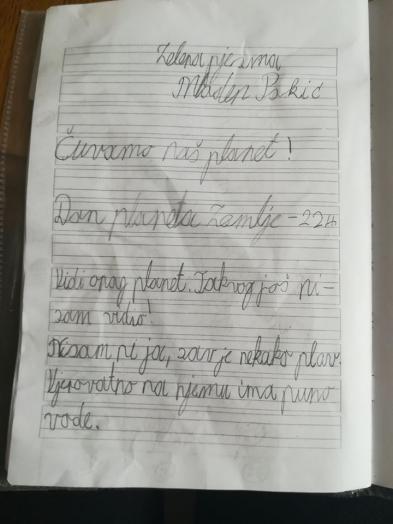 Zelena pjesma
Mladen Pokić
Čuvamo naš planet!
Dan planeta Zemlje - 22.4.
Vidi onaj planet. Takvog još ni-
sam vidio!
Nisam ni ja, sav je nekako plav.
Vjerovatno na njemu ima puno
vode.